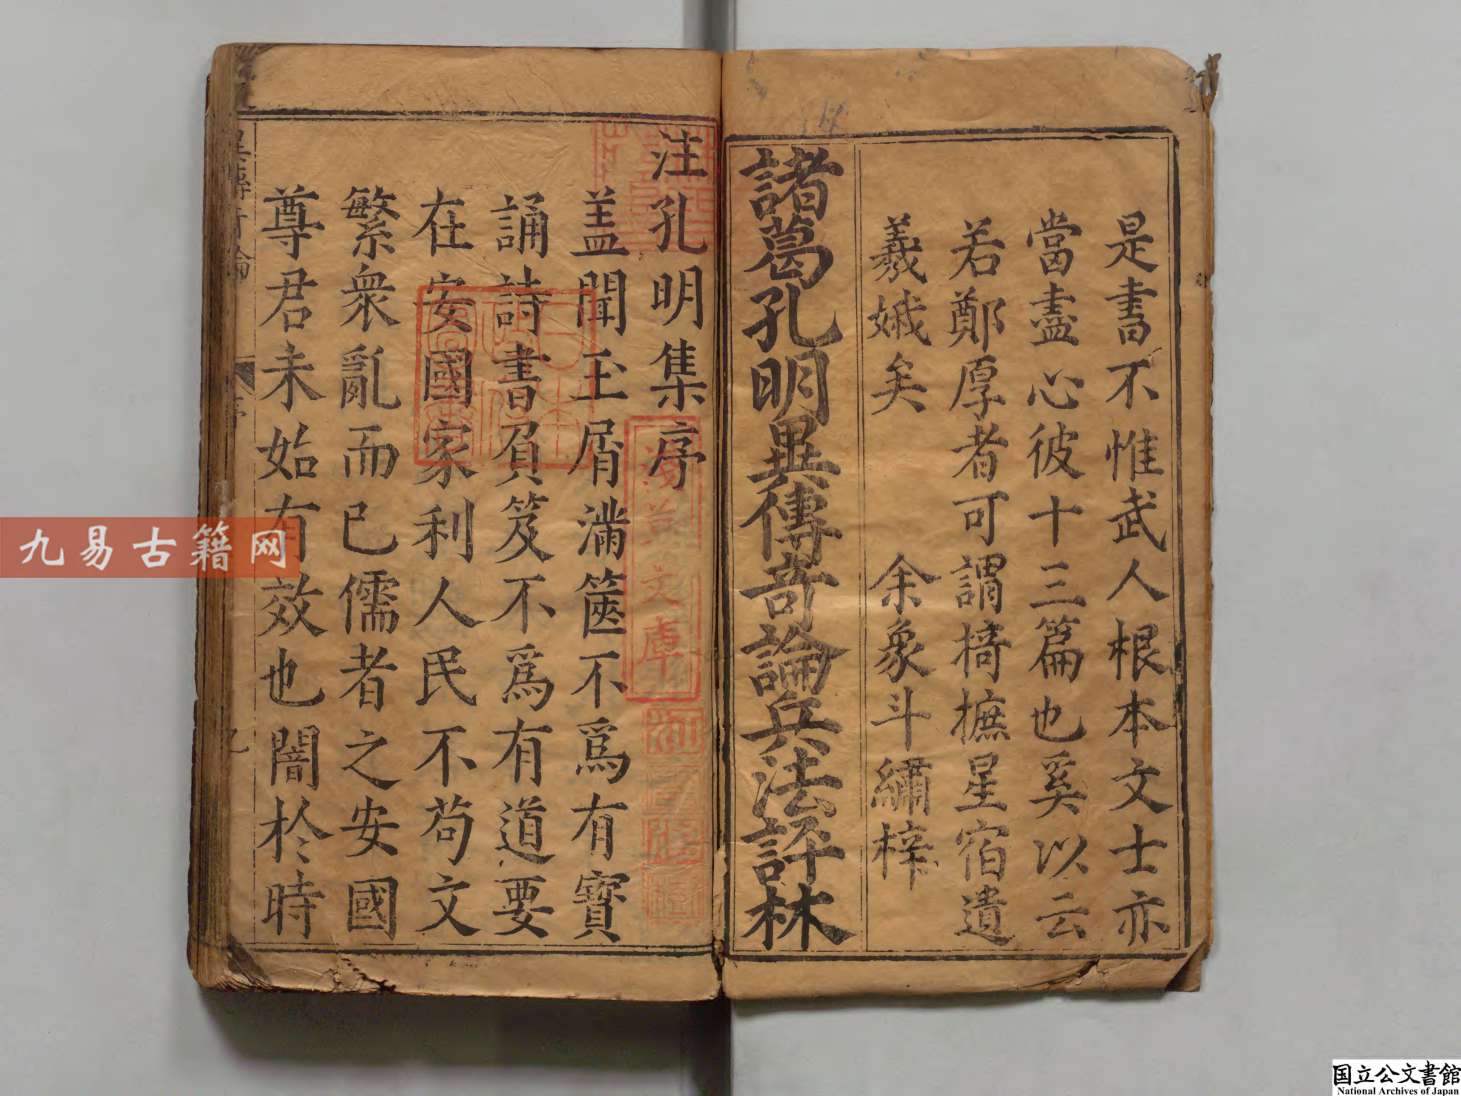 是書不惟武人根本文士亦
當盡心彼十三篇也奚以云
若鄭厚者可謂掎摭星宿遺
羲娥矣　余象斗繡梓
諸葛孔明異傳奇論兵法評林
注孔明集序
盖聞玉屑滿篋不爲有寶
誦詩書負笈不爲有道要
在安國家利人民不苟文
繁衆亂而已儒者之安國
尊君未始有效也闇於時
文庫
九易古籍网
国立公文書館
National Archives of Japan